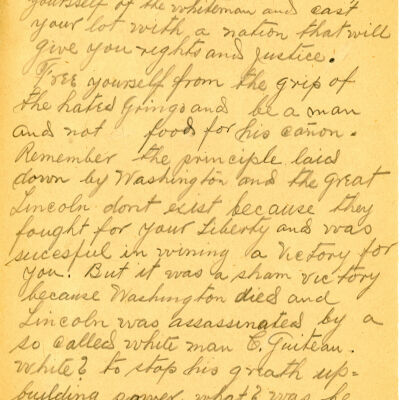 yourself of the whiteman and cast
your lot with a nation that will
give you rights and justice.
Free yourself from the grip of
the hated Gringo and be a man
and not food for his cañon.
Remember the principle laid
down by Washington and the Great
Lincoln dont exist because they
fought for your Liberty and was
sucesful in wining a Victory for
you. But it was a sham victory
because Washington died and
Lincoln was assassinated by a
so called white man C. Guiteau.
White? to stop his great up=
building power what? was he